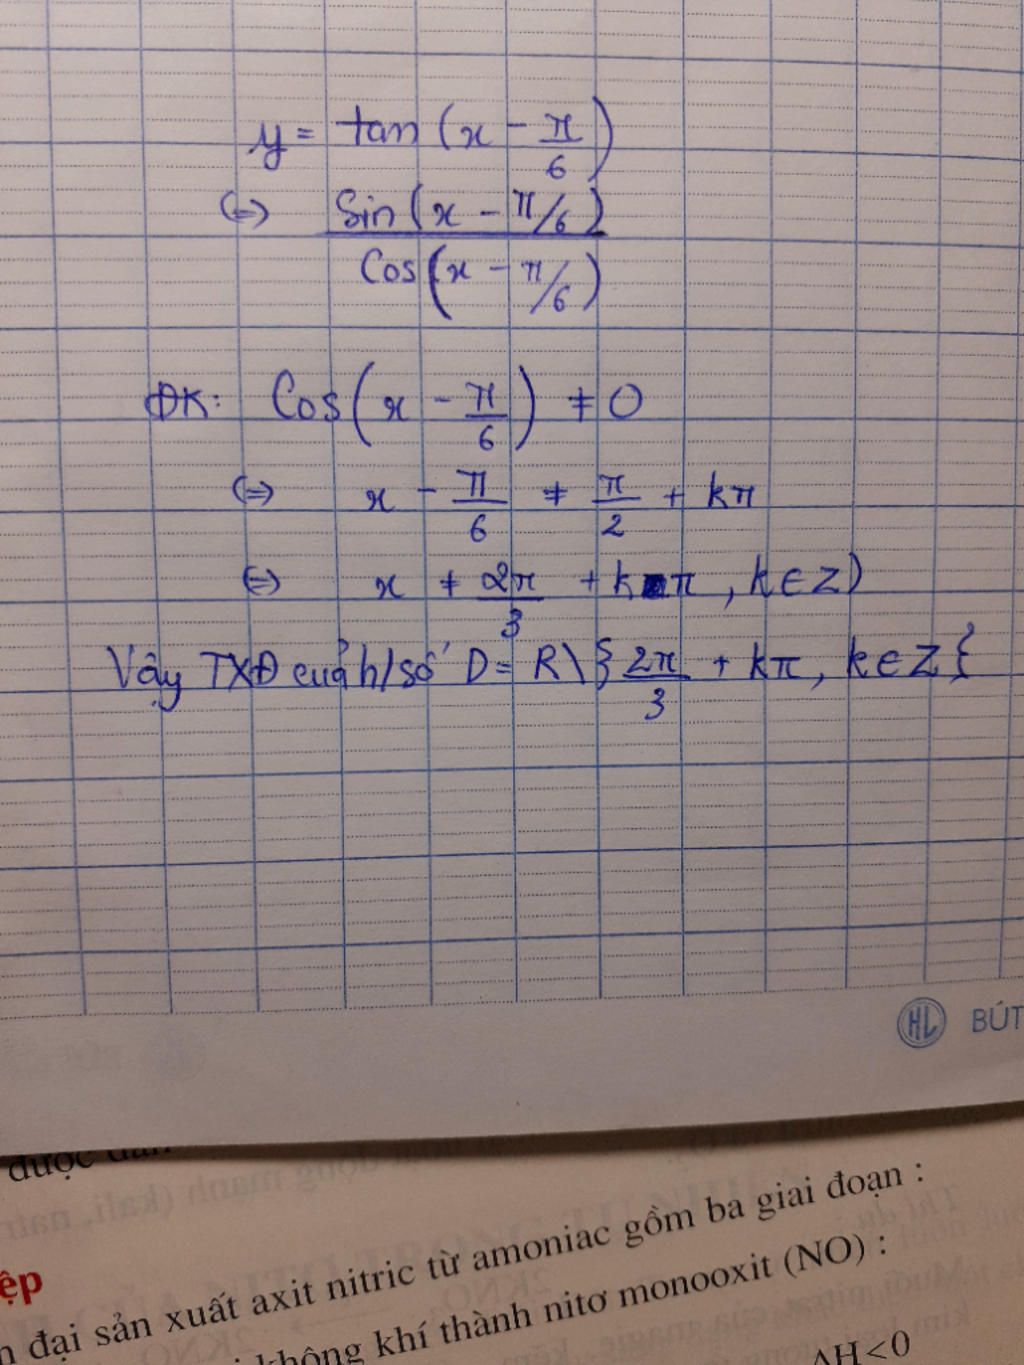 y = tan(x - π/6)
(=) Sin(x - π/6) / Cos(x - π/6)
ĐK: Cos(x - π/6) ≠ 0
(=) x - π/6 ≠ π/2 + kπ
(=) x ≠ 2π/3 + kπ, k∈Z)
Vậy TXĐ cuả h/số D = R\}2π/3 + kπ, k∈Z{
HL BÚT
được
ệp
đại sản xuất axit nitric từ amoniac gồm ba giai đoạn :
không khí thành nitơ monooxit (NO) :
ΔH<0